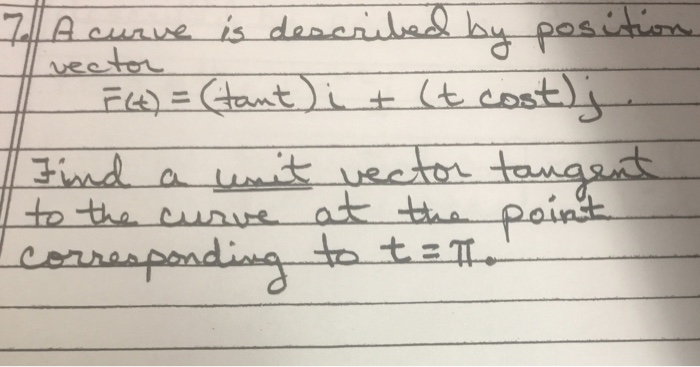 7. A curve is described by position
vector
r̄(t) = (tant)i + (t cost)j.
Find a unit vector tangent
to the curve at the point
corresponding to t = π.